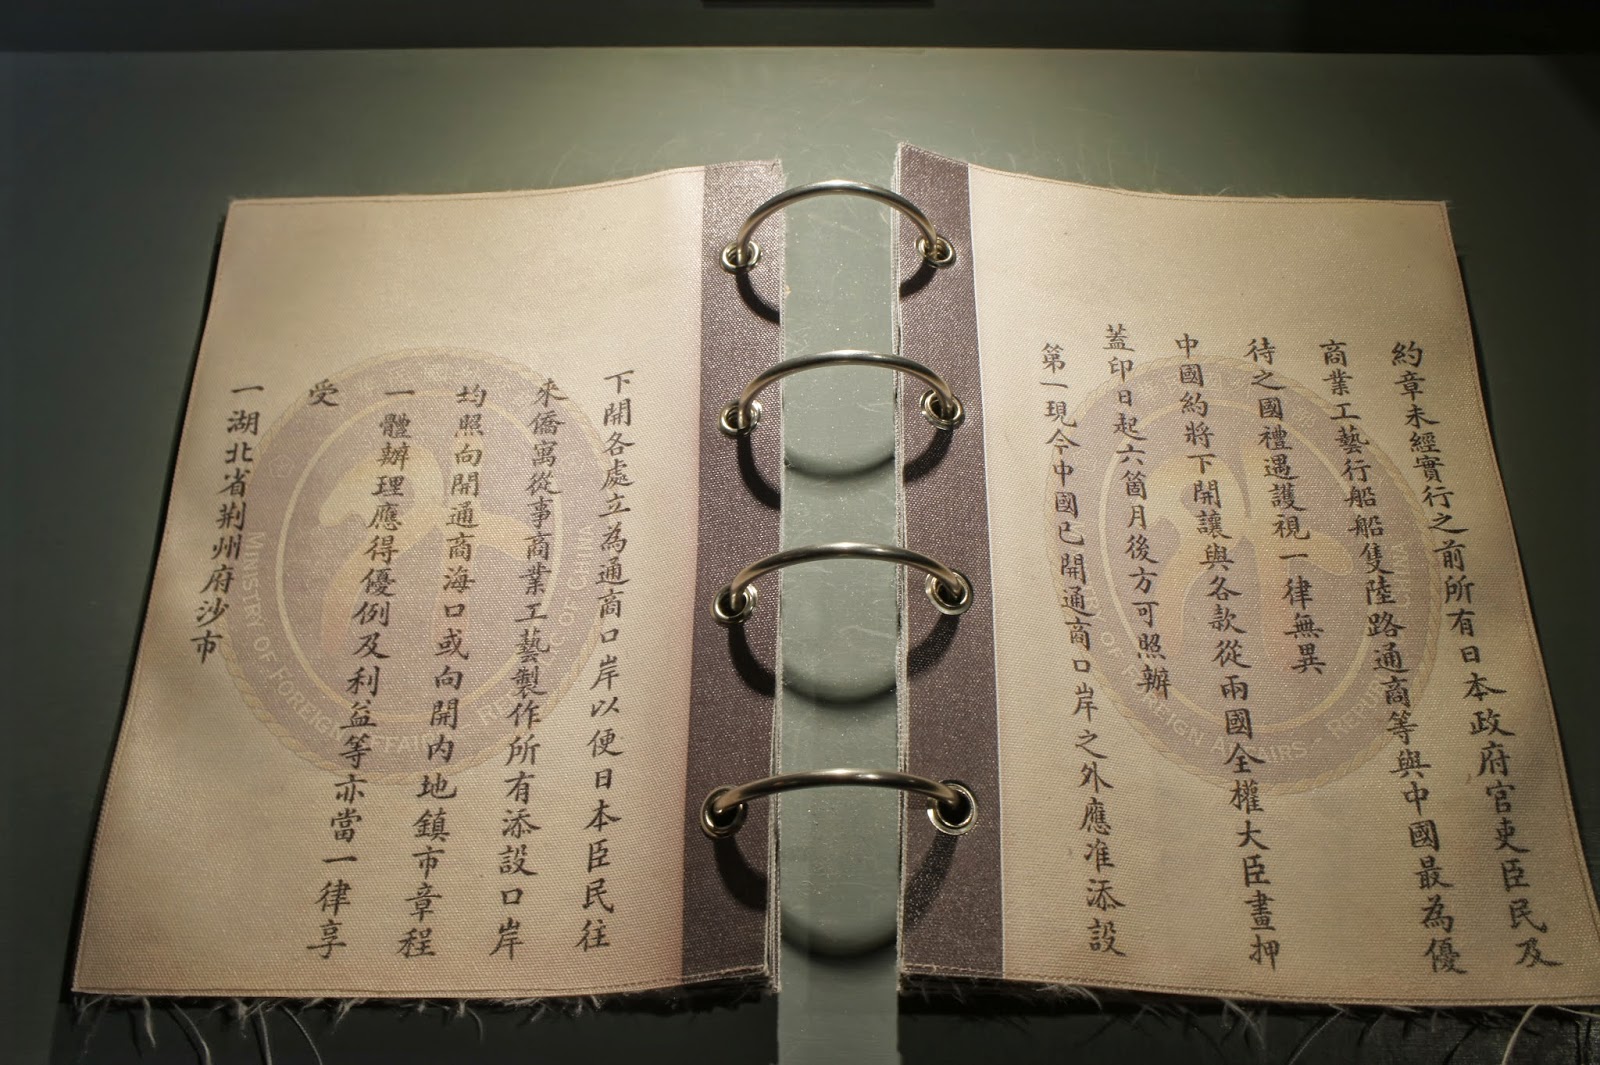 約章未經實行之前所有日本政府官吏臣民及
商業工藝行船船隻陸路通商等與中國最為優
待之國禮遇護視一律無異
中國約將下開讓與各款從兩國全權大臣畫押
蓋印日起六箇月後方可照辦
第一現今中國已開通商口岸之外應准添設
下開各處立為通商口岸以便日本臣民往
來僑寓從事商業工藝製作所有添設口岸
均照向開通商海口或向開內地鎮市章程
一體辦理應得優例及利益等亦當一律享
受
一湖北省荆州府沙市
MINISTRY OF FOREIGN AFFAIRS - REPUBLIC OF CHINA
OF FOREIGN AFFAIRS - REPUBLIC CHINA